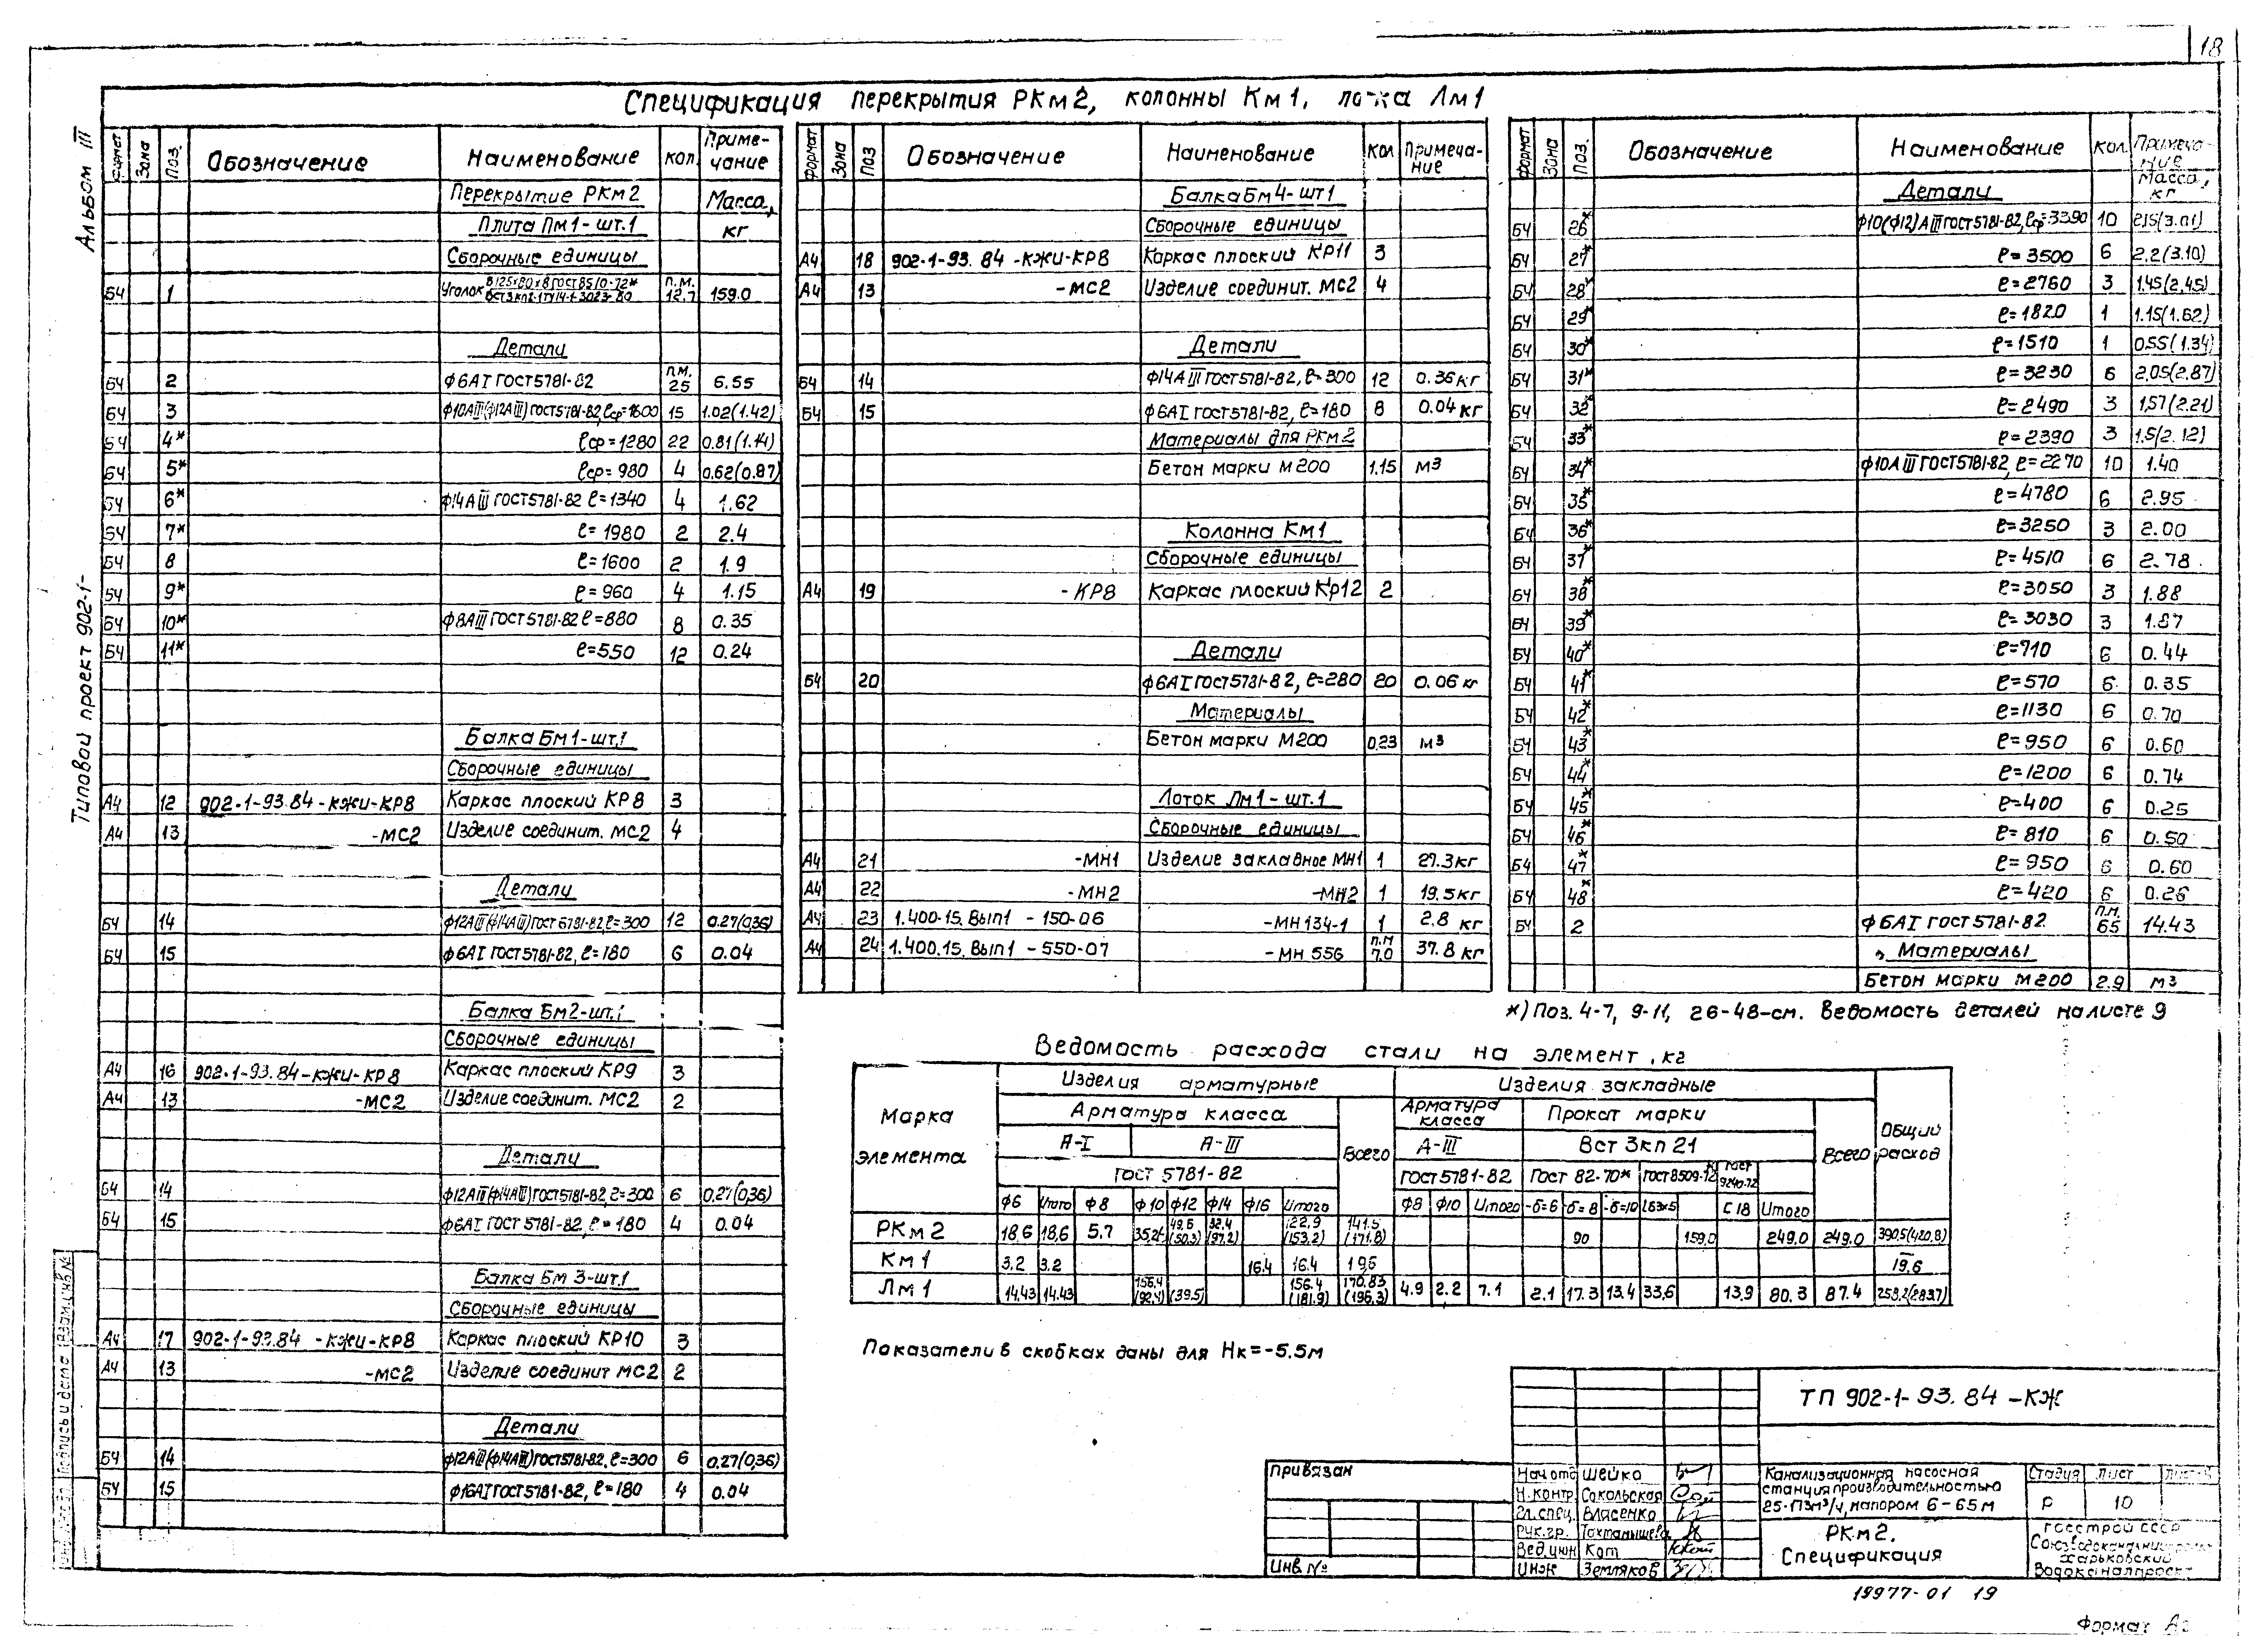 18
Спецификация перекрытия РКм2, колонны Км1, лотка Лм1
Альбом III
Типовой проект 902-1-
Формат Зона Поз. Обозначение Наименование кол. Примечание
Перекрытие РКм2 Масса,
Плита Пм1-шт.1 кг
Сборочные единицы
БЧ 1 Уголок п.м. 12.7 159.0
Детали
БЧ 2 ф6АI ГОСТ5781-82 п.м. 25 6.55
БЧ 3 ф10АIII(ф12АIII)ГОСТ5781-82,ℓср=1600 15 1.02(1.42)
БЧ 4* ℓср=1280 22 0.81(1.14)
БЧ 5* ℓср=980 4 0.62(0.87)
БЧ 6* ф14АIII ГОСТ5781-82 ℓ=1340 4 1.62
БЧ 7* ℓ=1980 2 2.4
БЧ 8 ℓ=1600 2 1.9
БЧ 9* ℓ=960 4 1.15
БЧ 10* ф8АIII ГОСТ5781-82 ℓ=880 8 0.35
БЧ 11* ℓ=550 12 0.24
Балка Бм1-шт.1
Сборочные единицы
А4 12 902-1-93.84-КЖИ-КР8 Каркас плоский КР8 3
А4 13 -МС2 Изделие соединит. МС2 4
Детали
БЧ 14 ф12АIII(ф14АIII)ГОСТ5781-82,ℓ=300 12 0.27(0,36)
БЧ 15 ф6АI ГОСТ5781-82, ℓ=180 6 0.04
Балка Бм2-шт.1
Сборочные единицы
А4 16 902-1-93.84-КЖИ-КР8 Каркас плоский КР9 3
А4 13 -МС2 Изделие соединит. МС2 2
Детали
БЧ 14 ф12АIII(ф14АIII)ГОСТ5781-82,ℓ=300 6 0,27(0,36)
БЧ 15 ф6АI ГОСТ 5781-82, ℓ=180 4 0.04
Балка Бм 3-шт.1
Сборочные единицы
А4 17 902-1-93.84-КЖИ-КР8 Каркас плоский КР10 3
А4 13 -МС2 Изделие соединит МС2 2
Детали
БЧ 14 ф12АIII(ф14АIII)ГОСТ5781-82,ℓ=300 6 0,27(0,36)
БЧ 15 ф16АI ГОСТ5781-82, ℓ=180 4 0.04
Формат Зона Поз Обозначение Наименование Кол Примечание
Балка Бм4-шт1
Сборочные единицы
А4 18 902-1-93.84-КЖИ-КР8 Каркас плоский КР11 3
А4 13 -МС2 Изделие соединит. МС2 4
Детали
БЧ 14 ф14АIII ГОСТ5781-82, ℓ=300 12 0.36кг
БЧ 15 ф6АI ГОСТ5781-82, ℓ=180 8 0.04кг
Материалы для РКм2
Бетон марки М200 1.15 м3
Колонна Км1
Сборочные единицы
А4 19 -КР8 Каркас плоский Кр12 2
Детали
БЧ 20 ф6АI ГОСТ5781-82, ℓ=280 20 0.06 кг
Материалы
Бетон марки М200 0,23 м3
Лоток Лм1-шт.1
Сборочные единицы
А4 21 -МН1 Изделие закладное МН1 1 27.3кг
А4 22 -МН2 -МН2 1 19.5кг
А4 23 1.400-15. Вып1 -150-06 -МН134-1 1 2.8 кг
А4 24 1.400.15. Вып1 -550-07 -МН 556 п.м 7.0 37.8 кг
Формат Зона Поз. Обозначение Наименование Кол. Примечание
Масса, кг
Детали
БЧ 26* ф10(ф12)АIII ГОСТ5781-82, ℓср=3390 10 2,15(3.01)
БЧ 27* ℓ=3500 6 2,2(3.10)
БЧ 28* ℓ=2760 3 1,45(2,45)
БЧ 29* ℓ=1820 1 1.15(1.62)
БЧ 30* ℓ=1510 1 0.55(1.34)
БЧ 31* ℓ=3230 6 2,05(2,87)
БЧ 32* ℓ=2490 3 1,57(2.21)
БЧ 33* ℓ=2390 3 1.5(2.12)
БЧ 34* ф10АIII ГОСТ5781-82, ℓ=2270 10 1.40
БЧ 35* ℓ=4780 6 2.95
БЧ 36* ℓ=3250 3 2.00
БЧ 37* ℓ=4510 6 2.78
БЧ 38* ℓ=3050 3 1.88
БЧ 39* ℓ=3030 3 1.87
БЧ 40* ℓ=710 6 0.44
БЧ 41* ℓ=570 6 0.35
БЧ 42* ℓ=1130 6 0.70
БЧ 43* ℓ=950 6 0.60
БЧ 44* ℓ=1200 6 0.74
БЧ 45* ℓ=400 6 0.25
БЧ 46* ℓ=810 6 0.50
БЧ 47* ℓ=950 6 0.60
БЧ 48* ℓ=420 6 0.26
БЧ 2 ф6АI ГОСТ5781-82 п.м. 65 14.43
Материалы
Бетон марки М200 2.9 м3
*) Поз. 4-7, 9-11, 26-48-см. Ведомость деталей на листе 9
Ведомость расхода стали на элемент, кг
Марка элемента
Изделия арматурные Изделия закладные
Арматура класса Всего Арматура класса Прокат марки Всего Общий расход
А-I А-III А-III Вст 3кп 21
ГОСТ 5781-82 ГОСТ5781-82 ГОСТ 82-70* ГОСТ8509-72 ГОСТ 9240-72
ф6 Итого ф8 ф10 ф12 ф14 ф16 Итого ф8 ф10 Итого -б=6 -б=8 -б=10 С18 Итого
РКм2 18,6 18,6 5.7 49.6 (50.3) 32.4 (97.2) 122.9 (153,2) 141.5 (171.8) 90 159,0 249.0 249.0 390.5(420,8)
Км1 3.2 3.2 16.4 16.4 19,6 19.6
Лм1 14.43 14.43 156.4 (92,4) (39.5) 156.4 (181.9) 170.83 (196.3) 4.9 2.2 7.1 2.1 17.3 13.4 33,6 13,9 80.3 87.4 258,2(283.7)
Показатели в скобках даны для Нк=-5.5м
ТП 902-1-93.84-КЖ
Привязан
Инв.№
Нач.отд Шейко
Н.контр. Сокольская
Гл.спец. Власенко
Рук.гр. Тохтамышева
Вед.инж Кот
Инж Земляков
Канализационная насосная
станция производительностью
25-173м³/ч, напором 6-65м
Стадия Лист Листов
Р 10
РКм2.
Спецификация
Госстрой СССР
Харьковский
Водоканалпроект
19977-01 19
Формат А2
Инв.№подл. Подпись и дата Взам.инв.№